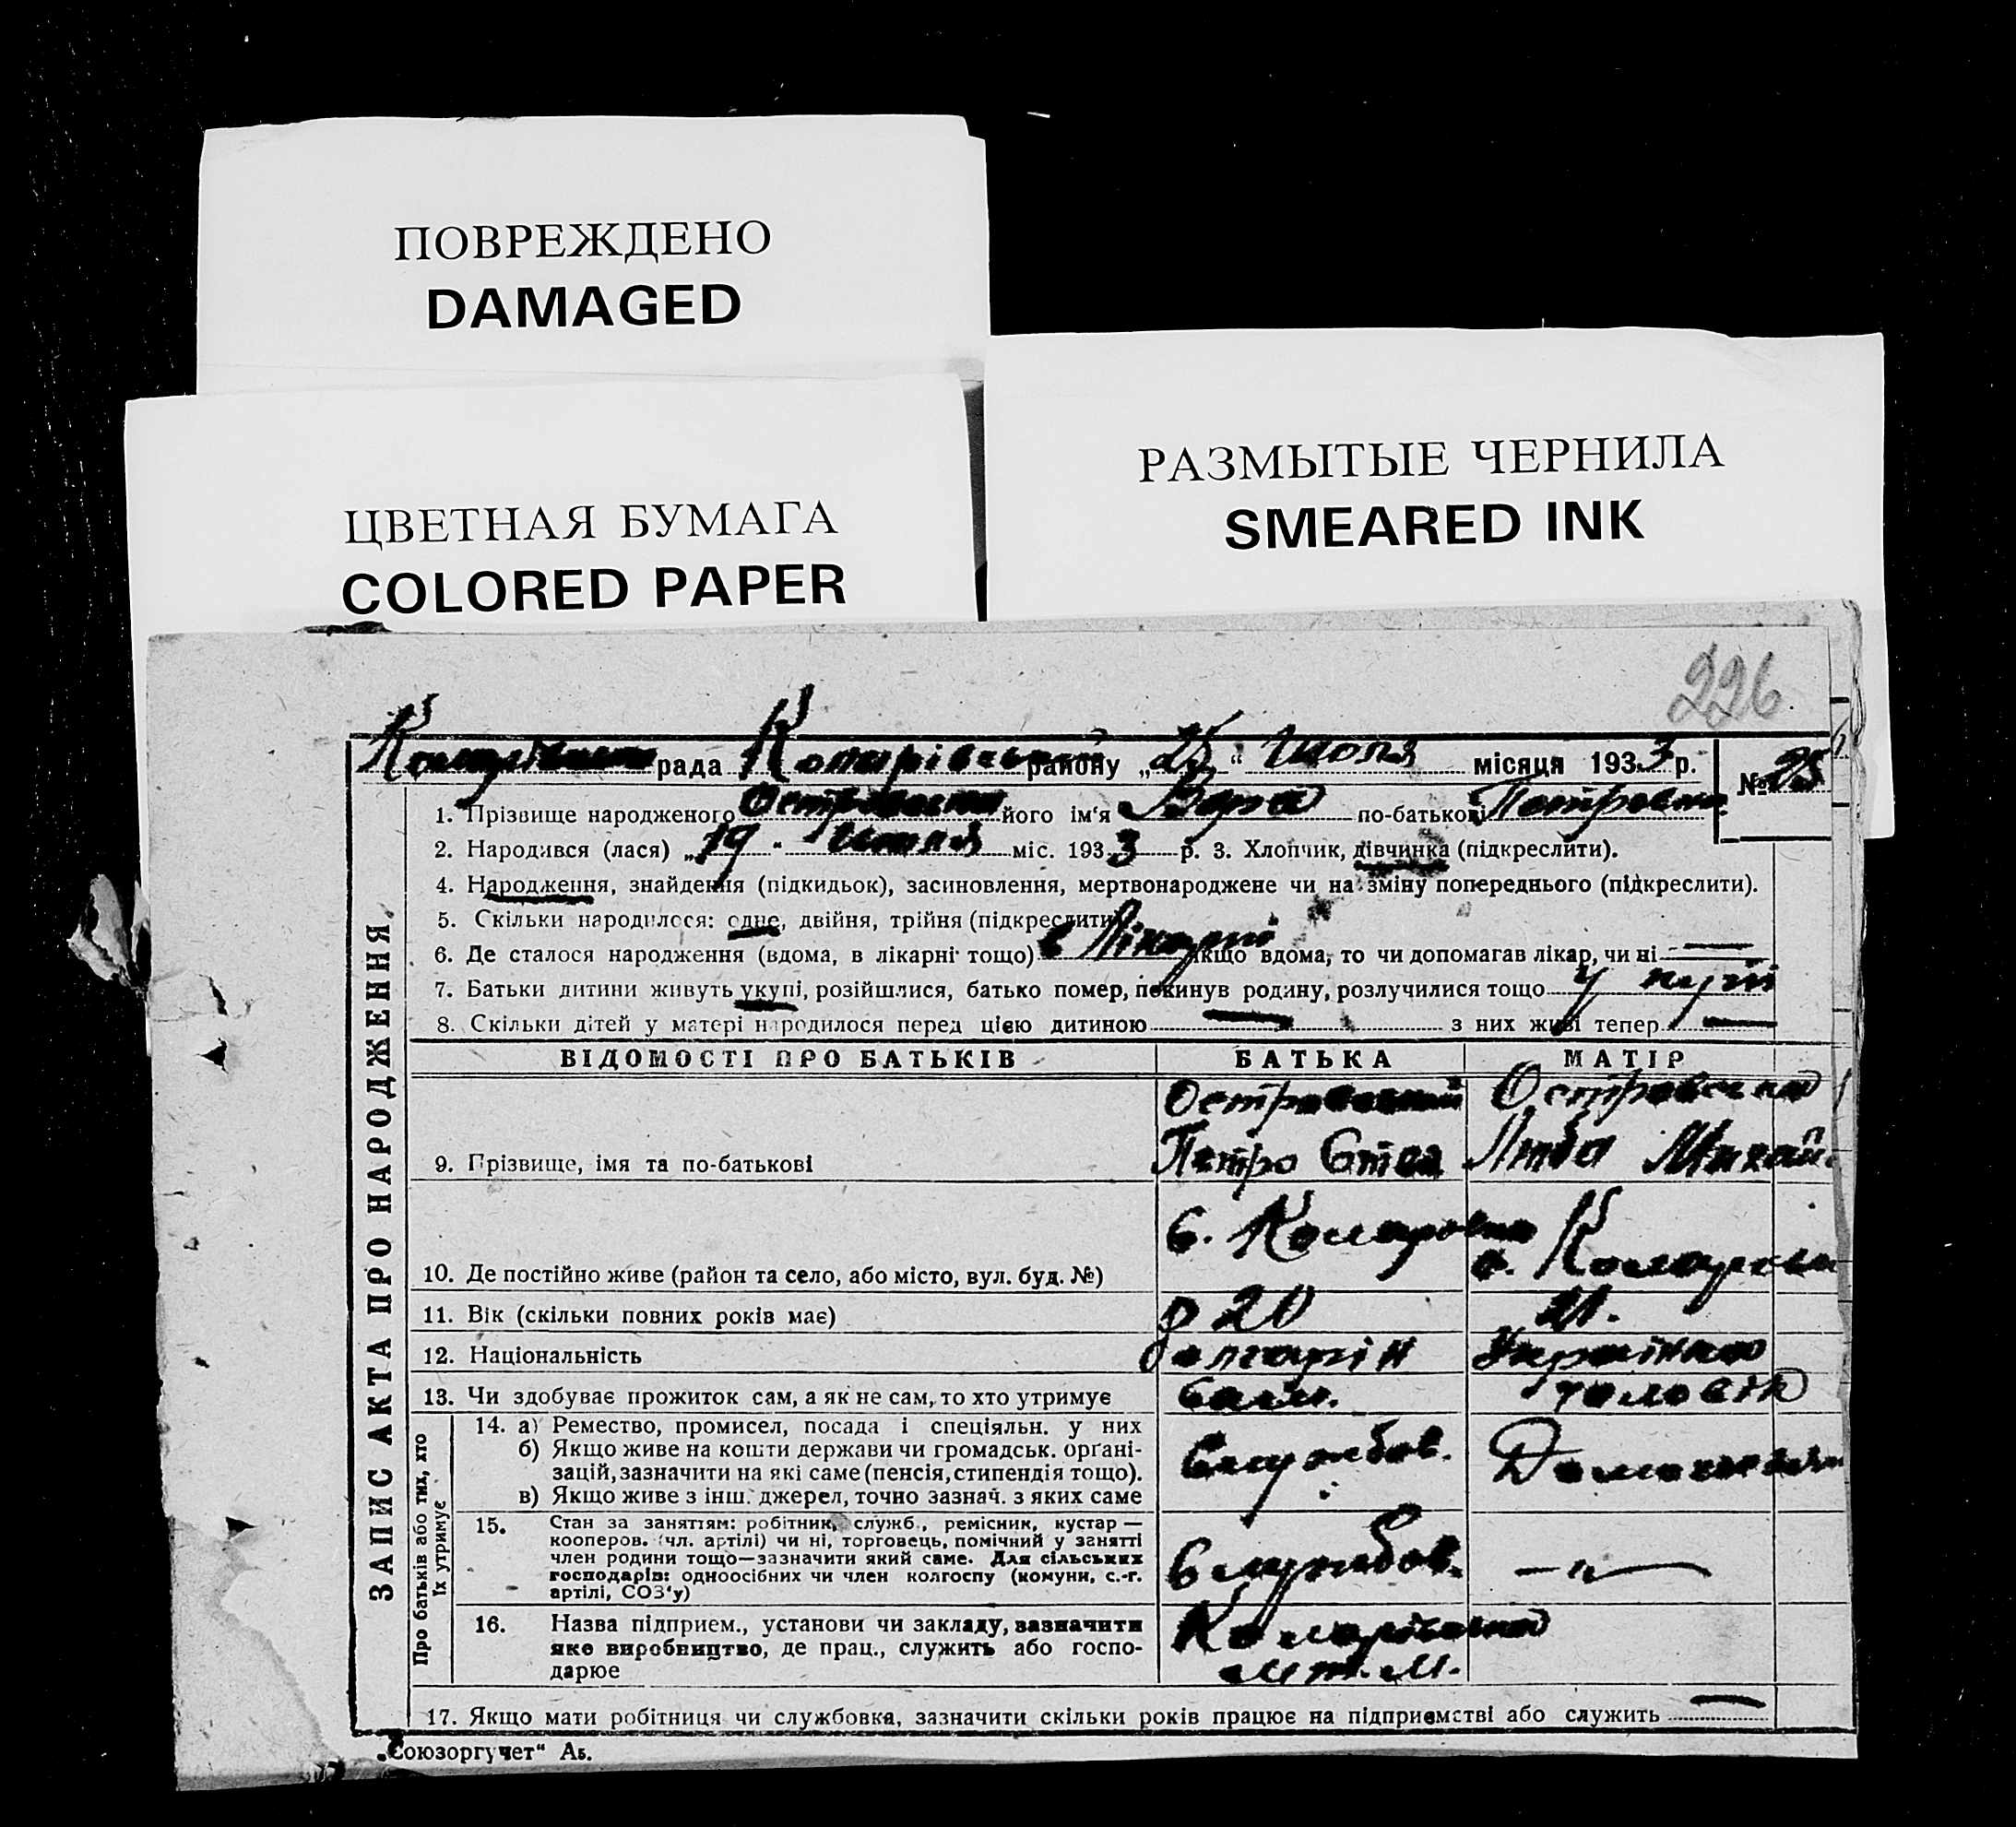 ПОВРЕЖДЕНО
DAMAGED
РАЗМЫТЫЕ ЧЕРНИЛА
SMEARED INK
ЦВЕТНАЯ БУМАГА
COLORED PAPER
226
рада району „25“ июля місяця 1933 р. № 25
1. Прізвище народженого його ім'я Вера по-батькові Петровна
2. Народився (лася) „19 " июля міс. 1933 р. 3. Хлопчик, дівчинка (підкреслити).
4. Народження, знайдення (підкидьок), засиновлення, мертвонароджене чи на зміну попереднього (підкреслити).
5. Скільки народилося: одне, двійня, трійня (підкреслити)
6. Де сталося народження (вдома, в лікарні тощо) в Лікарні якщо вдома, то чи допомагав лікар, чи ні —
7. Батьки дитини живуть укупі, розійшлися, батько помер, покинув родину, розлучилися тощо у купі
8. Скільки дітей у матері народилося перед цією дитиною — з них живі тепер —
ЗАПИС АКТА ПРО НАРОДЖЕННЯ
ВІДОМОСТІ ПРО БАТЬКІВ БАТЬКА МАТІР
Островський Островська
9. Прізвище, імя та по-батькові Петро Люба Михай
с. Комаровка с. Комаровка
10. Де постійно живе (район та село, або місто, вул. буд. №)
11. Вік (скільки повних років має) 20 21.
12. Національність болгарін Українка
13. Чи здобуває прожиток сам, а як не сам, то хто утримує сам. чоловік
Про батьків або тих, хто їх утримує
14. а) Ремество, промисел, посада і спеціяльн. у них
б) Якщо живе на кошти держави чи громадськ. органі-
зацій, зазначити на які саме (пенсія, стипендія тощо). Службов.
в) Якщо живе з інш. джерел, точно зазнач. з яких саме
15. Стан за заняттям: робітник, служб., ремісник, кустар —
кооперов. (чл. артілі) чи ні, торговець, помічний у занятті
член родини тощо—зазначити який саме. Для сільських Службов. —"—
господарів: одноосібних чи член колгоспу (комуни, с.-г.
артілі, СОЗ'у)
16. Назва підприєм., установи чи закладу, зазначити
яке виробництво, де прац., служить або госпо-
дарює
17. Якщо мати робітниця чи службовка, зазначити скільки років працює на підприємстві або служить —
„Союзоргучет" Аб.